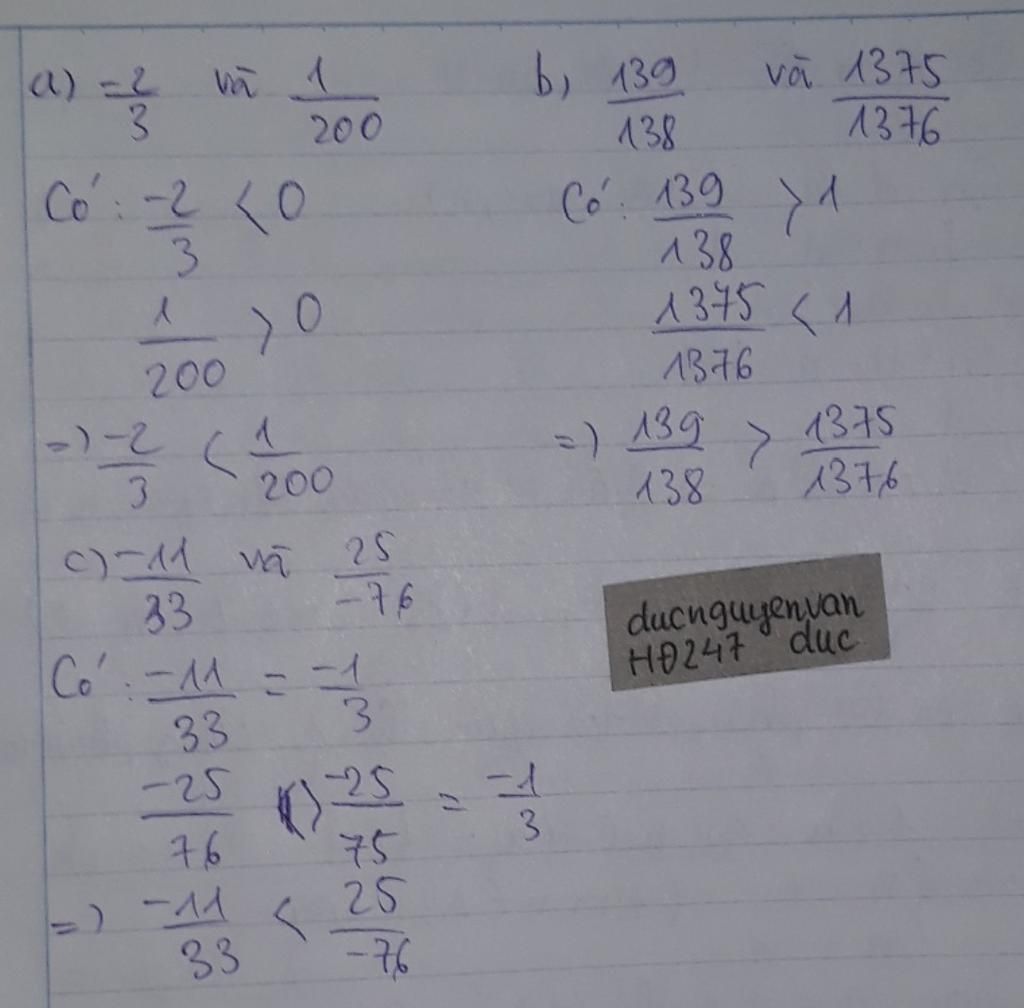 a) -2/3 và 1/200
Có: -2/3 < 0
1/200 > 0
=) -2/3 < 1/200
b, 139/138 và 1375/1376
Có: 139/138 > 1
1375/1376 < 1
=) 139/138 > 1375/1376
c) -11/33 và 25/-76
Có: -11/33 = -1/3
-25/76 > -25/75 = -1/3
=) -11/33 < 25/-76
ducnguyenvan
HĐ247 duc